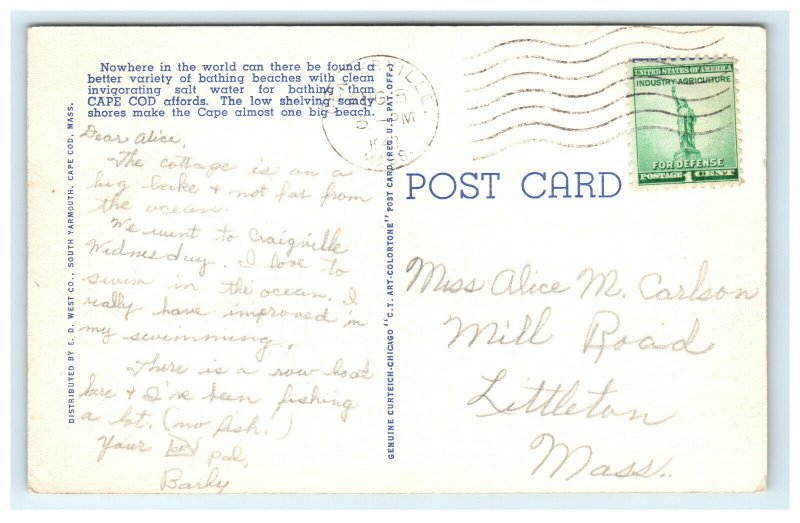 Nowhere in the world can there be found a
better variety of bathing beaches with clean
invigorating salt water for bathing than
CAPE COD affords. The low shelving sandy
shores make the Cape almost one big beach.
Dear Alice,
The cottage is on a
big lake & not far from
the ocean.
We went to Craigville
Wednesday. I love to
swim in the ocean. I
really have improved in
my swimming.
There is a row boat
here & I've been fishing
a lot. (no fish.)
Your pal,
DISTRIBUTED BY E. D. WEST CO., SOUTH YARMOUTH, CAPE COD, MASS.
GENUINE CURTEICH-CHICAGO "C.T. ART-COLORTONE" POST CARD (REG. U.S. PAT. OFF.)
MASS.
UNITED STATES OF AMERICA
INDUSTRY AGRICULTURE
FOR DEFENSE
POSTAGE 1 CENT
POST CARD
Miss Alice M. Carlson
Mill Road
Littleton
Mass.